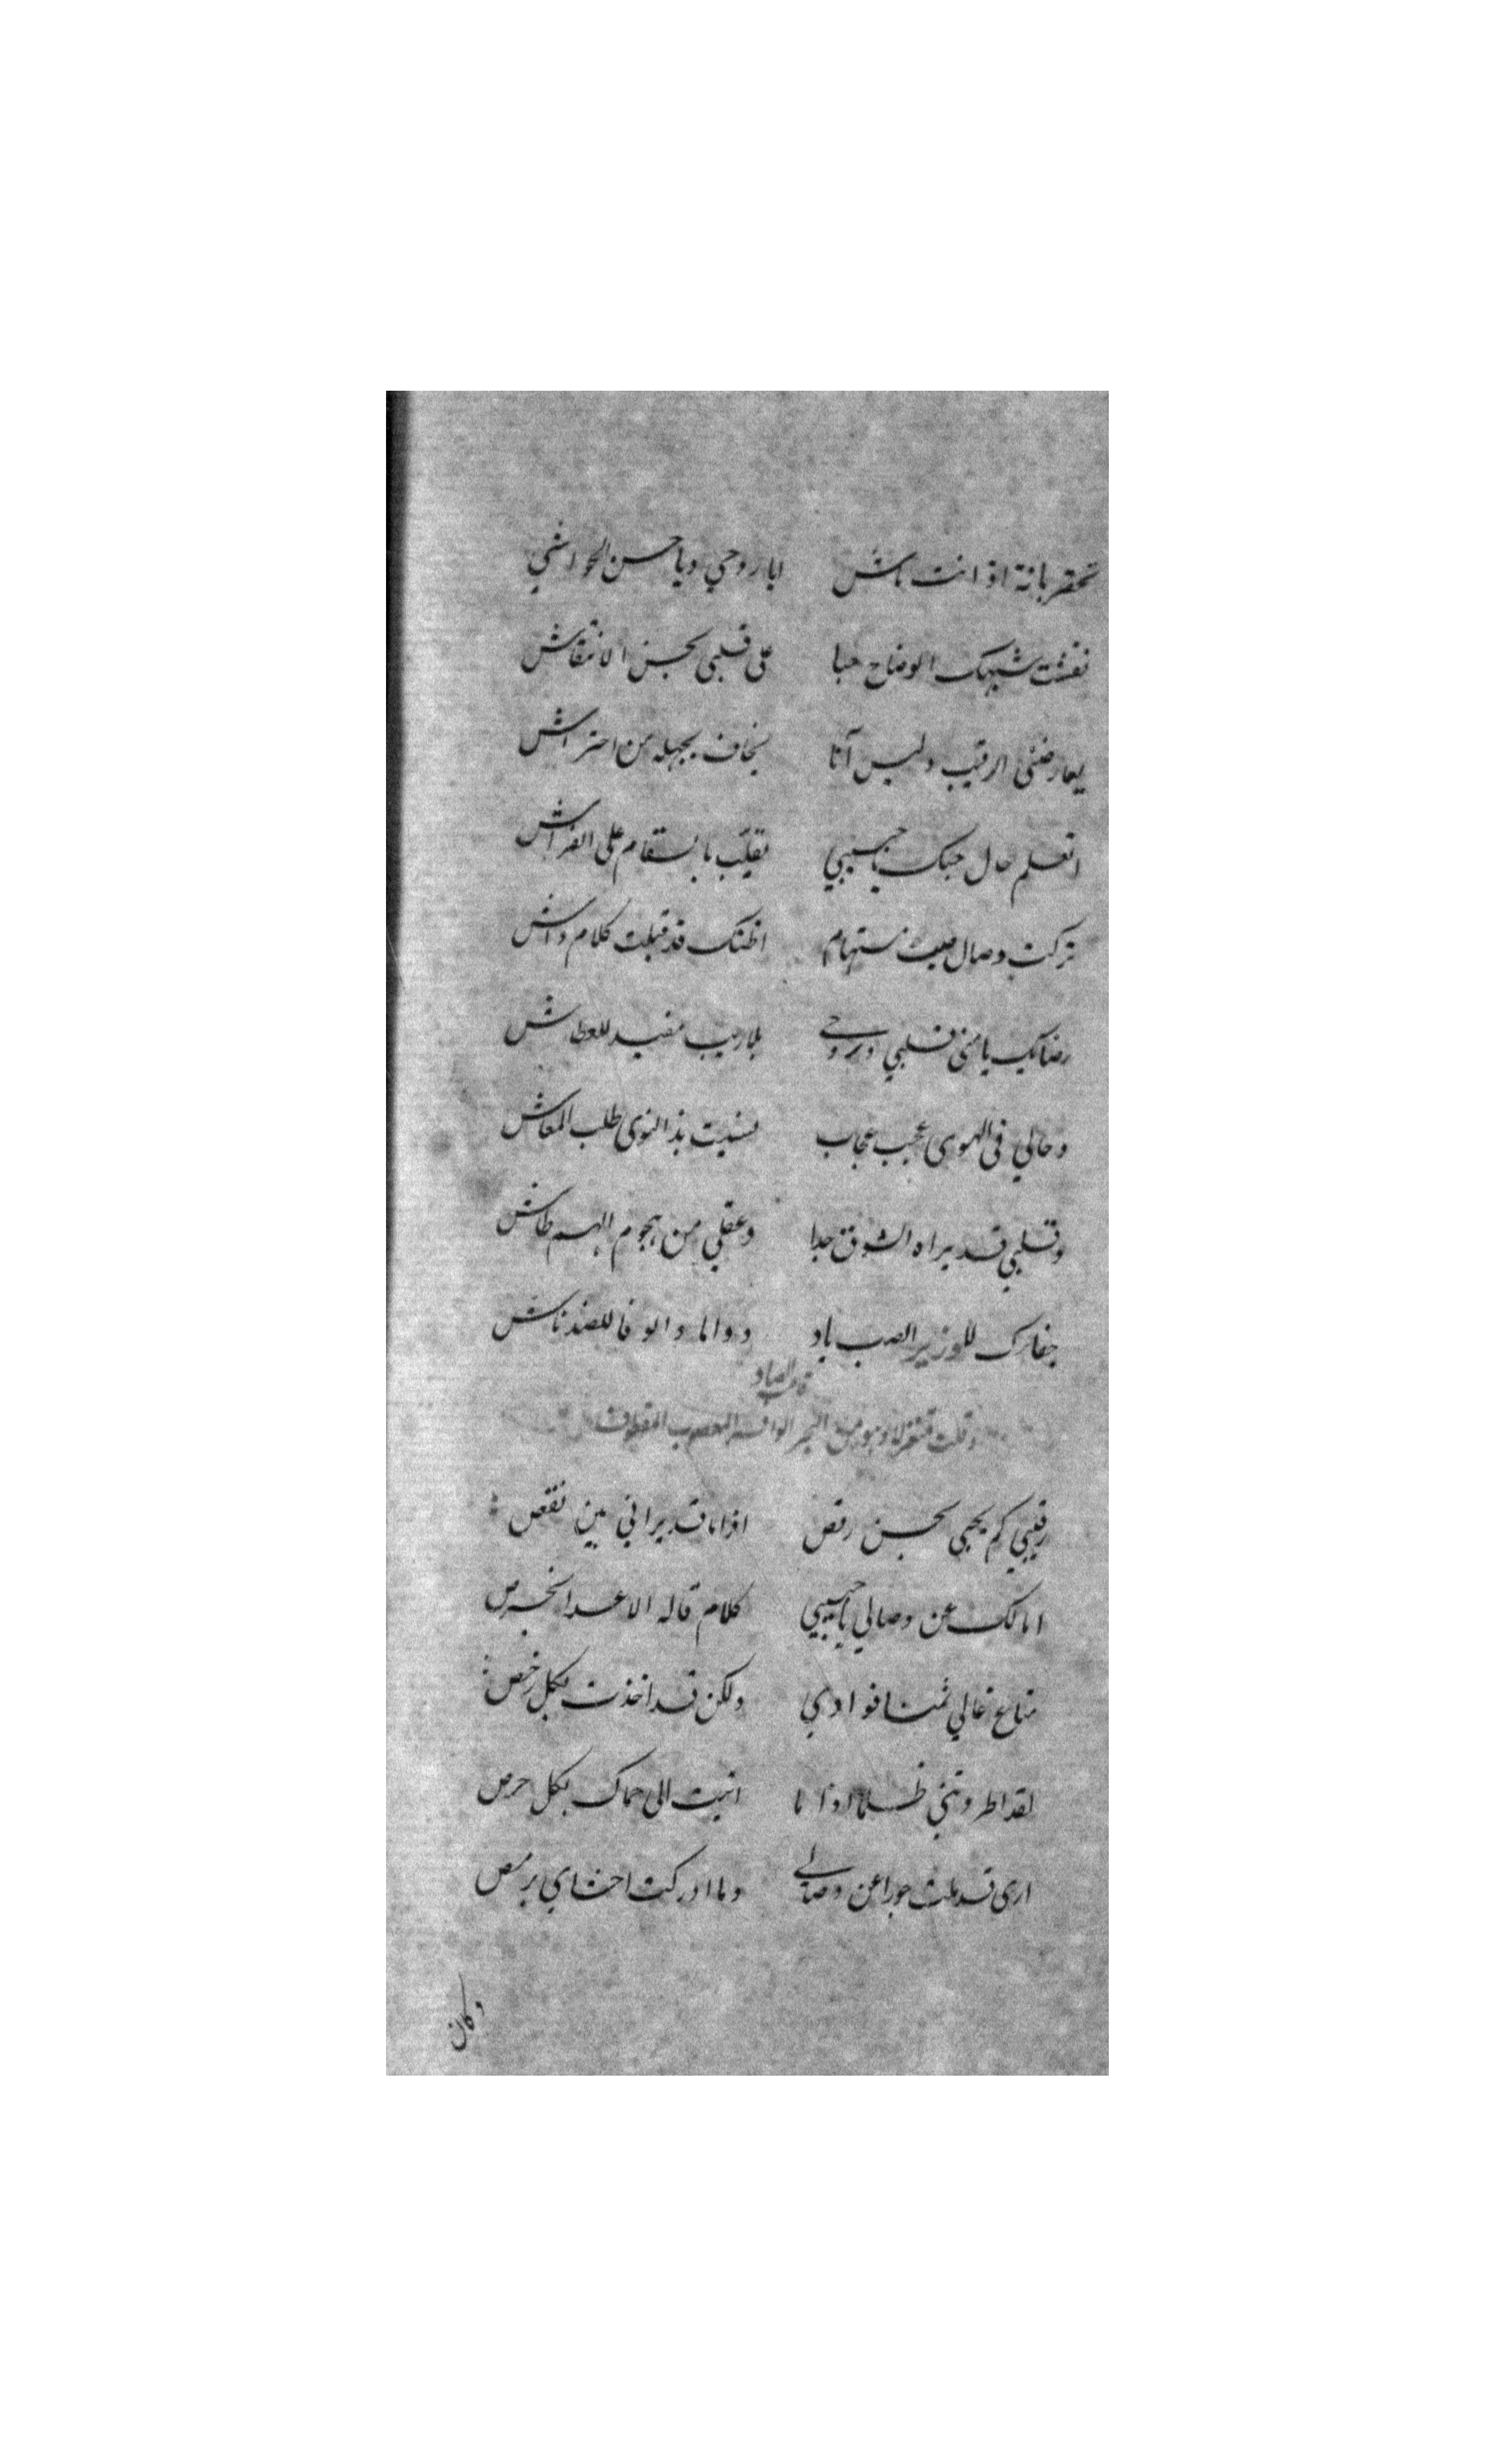 تحقر بانة اذ انت ماش ايا روحي ويا حسن الحواشي
نقشت شبهك الوضاح حبا على قلبي بحسن الانتقاش
يعارضني الرقيب وليس آنا يخاف بجهله من احتراش
اتعلم حال حبك يا حبيبي تقلب بالسقام على الفراش
تركت وصال صب مستهام اظنك قد قبلت كلام واش
رضابك يا منى قلبي وروحي بلا ريب مفيد للعطاش
وحالي في الهوى عجب عجاب نسيت بذا النوى طلب المعاش
وقلبي قد براه الشوق جدا وعقلي من هجوم الهم طاش
جفاك للوزير الصب باد دواما والوفا للضد ناش
قافية الصاد
وقلت متغزلا وهو من البحر الوافر المعصوب المقطوف
رقيبي كم يجي بحسن رقص اذا ما قد يراني بين نقص
امالك عن وصالي يا حبيبي كلام قاله الاعدا بخرص
متاع غالي ثمنا فوادي ولكن قد اخذت بكل رخص
لقد اطردتني ظلما اذا ما اتيت الى حماك بكل حرص
ارى قد ملت جورا عن وصالي وما ادركت احشاي برمص
وكان